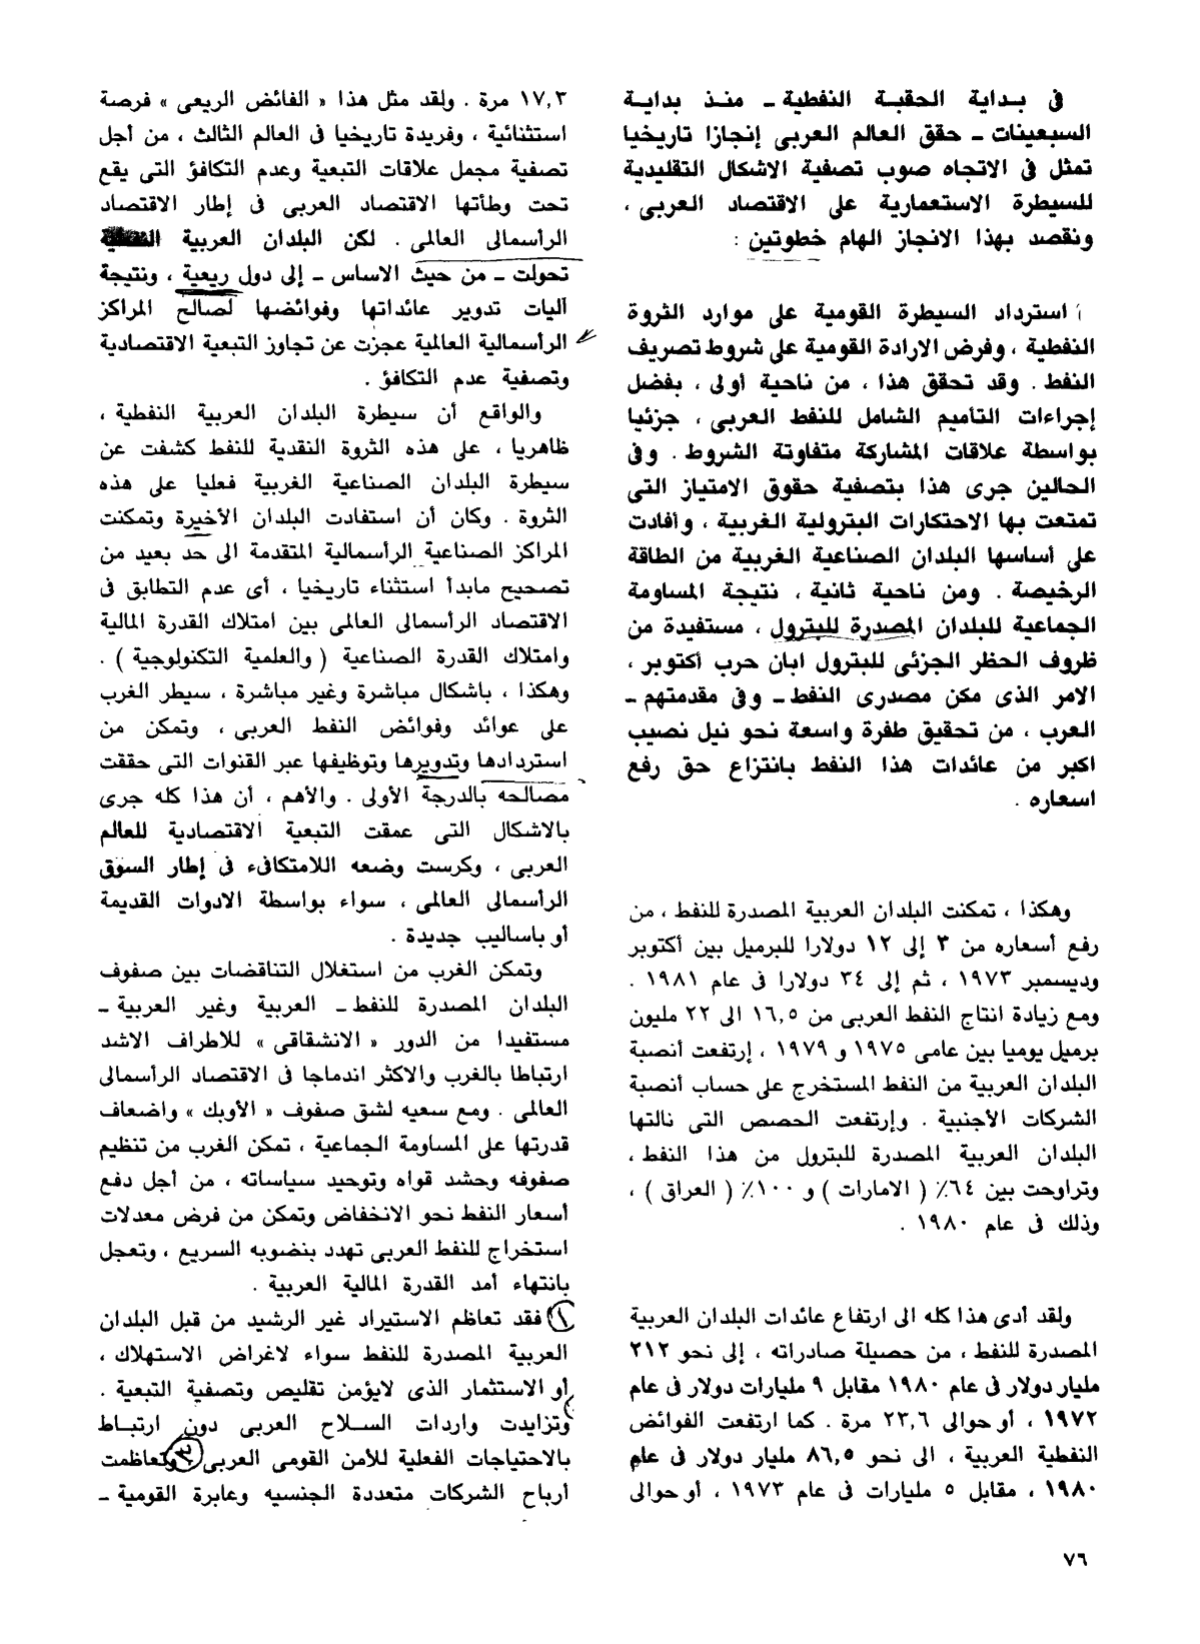 فى بداية الحقبة النفطية ـ منذ بداية
السبعينات ـ حقق العالم العربى إنجازا تاريخيا
تمثل فى الاتجاه صوب تصفية الاشكال التقليدية
للسيطرة الاستعمارية على الاقتصاد العربى ،
ونقصد بهذا الانجاز الهام خطوتين :
استرداد السيطرة القومية على موارد الثروة
النفطية ، وفرض الارادة القومية على شروط تصريف
النفط . وقد تحقق هذا ، من ناحية أولى ، بفضل
إجراءات التأميم الشامل للنفط العربى ، جزئيا
بواسطة علاقات المشاركة متفاوتة الشروط . وفى
الحالين جرى هذا بتصفية حقوق الامتياز التى
تمتعت بها الاحتكارات البترولية الغربية ، وأفادت
على أساسها البلدان الصناعية الغربية من الطاقة
الرخيصة . ومن ناحية ثانية ، نتيجة المساومة
الجماعية للبلدان المصدرة للبترول ، مستفيدة من
ظروف الحظر الجزئى للبترول ابان حرب أكتوبر ،
الامر الذى مكن مصدرى النفط ـ وفى مقدمتهم ـ
العرب ، من تحقيق طفرة واسعة نحو نيل نصيب
اكبر من عائدات هذا النفط بانتزاع حق رفع
اسعاره .
وهكذا ، تمكنت البلدان العربية المصدرة للنفط ، من
رفع أسعاره من ٣ إلى ١٢ دولارا للبرميل بين أكتوبر
وديسمبر ١٩٧٣ ، ثم إلى ٣٤ دولارا فى عام ١٩٨١ .
ومع زيادة انتاج النفط العربى من ١٦,٥ الى ٢٢ مليون
برميل يوميا بين عامى ١٩٧٥ و ١٩٧٩ ، إرتفعت أنصبة
البلدان العربية من النفط المستخرج على حساب أنصبة
الشركات الأجنبية . وإرتفعت الحصص التى نالتها
البلدان العربية المصدرة للبترول من هذا النفط ،
وتراوحت بين ٦٤٪ ( الامارات ) و ١٠٠٪ ( العراق ) ،
وذلك فى عام ١٩٨٠ .
ولقد أدى هذا كله الى ارتفاع عائدات البلدان العربية
المصدرة للنفط ، من حصيلة صادراته ، إلى نحو ٢١٢
مليار دولار فى عام ١٩٨٠ مقابل ٩ مليارات دولار فى عام
١٩٧٢ ، أو حوالى ٢٣,٦ مرة . كما ارتفعت الفوائض
النفطية العربية ، الى نحو ٨٦,٥ مليار دولار فى عام
١٩٨٠ ، مقابل ٥ مليارات فى عام ١٩٧٣ ، أو حوالى
١٧,٣ مرة . ولقد مثل هذا « الفائض الريعى » فرصة
استثنائية ، وفريدة تاريخيا فى العالم الثالث ، من أجل
تصفية مجمل علاقات التبعية وعدم التكافؤ التى يقع
تحت وطأتها الاقتصاد العربى فى إطار الاقتصاد
الرأسمالى العالمى . لكن البلدان العربية
تحولت ـ من حيث الاساس ـ إلى دول ريعية ، ونتيجة
آليات تدوير عائداتها وفوائضها لصالح المراكز
الرأسمالية العالمية عجزت عن تجاوز التبعية الاقتصادية
وتصفية عدم التكافؤ .
والواقع أن سيطرة البلدان العربية النفطية ،
ظاهريا ، على هذه الثروة النقدية للنفط كشفت عن
سيطرة البلدان الصناعية الغربية فعليا على هذه
الثروة . وكان أن استفادت البلدان الأخيرة وتمكنت
المراكز الصناعية الرأسمالية المتقدمة الى حد بعيد من
تصحيح مابدأ استثناء تاريخيا ، أى عدم التطابق فى
الاقتصاد الرأسمالى العالمى بين امتلاك القدرة المالية
وامتلاك القدرة الصناعية ( والعلمية التكنولوجية ) .
وهكذا ، باشكال مباشرة وغير مباشرة ، سيطر الغرب
على عوائد وفوائض النفط العربى ، وتمكن من
استردادها وتدويرها وتوظيفها عبر القنوات التى حققت
مصالحه بالدرجة الأولى . والأهم ، أن هذا كله جرى
بالاشكال التى عمقت التبعية الاقتصادية للعالم
العربى ، وكرست وضعه اللامتكافىء فى إطار السوق
الرأسمالى العالمى ، سواء بواسطة الادوات القديمة
أو باساليب جديدة .
وتمكن الغرب من استغلال التناقضات بين صفوف
البلدان المصدرة للنفط ـ العربية وغير العربية ـ
مستفيدا من الدور « الانشقاقى » للاطراف الاشد
ارتباطا بالغرب والاكثر اندماجا فى الاقتصاد الرأسمالى
العالمى . ومع سعيه لشق صفوف « الأوبك » واضعاف
قدرتها على المساومة الجماعية ، تمكن الغرب من تنظيم
صفوفه وحشد قواه وتوحيد سياساته ، من أجل دفع
أسعار النفط نحو الانخفاض وتمكن من فرض معدلات
استخراج للنفط العربى تهدد بنضوبه السريع ، وتعجل
بانتهاء أمد القدرة المالية العربية .
١ فقد تعاظم الاستيراد غير الرشيد من قبل البلدان
العربية المصدرة للنفط سواء لاغراض الاستهلاك ،
أو الاستثمار الذى لايؤمن تقليص وتصفية التبعية .
وتزايدت واردات السلاح العربى دون ارتباط
بالاحتياجات الفعلية للأمن القومى العربى وتعاظمت
أرباح الشركات متعددة الجنسيه وعابرة القومية ـ
٧٦